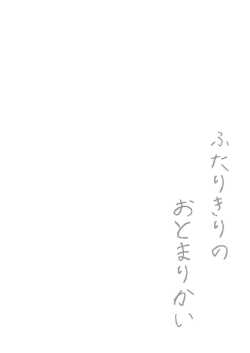 ふたりきりの
おとまりかい